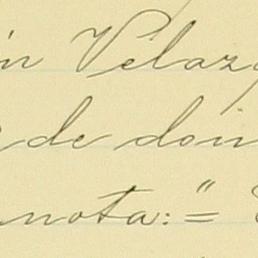 in Velaz
de don
nota:="